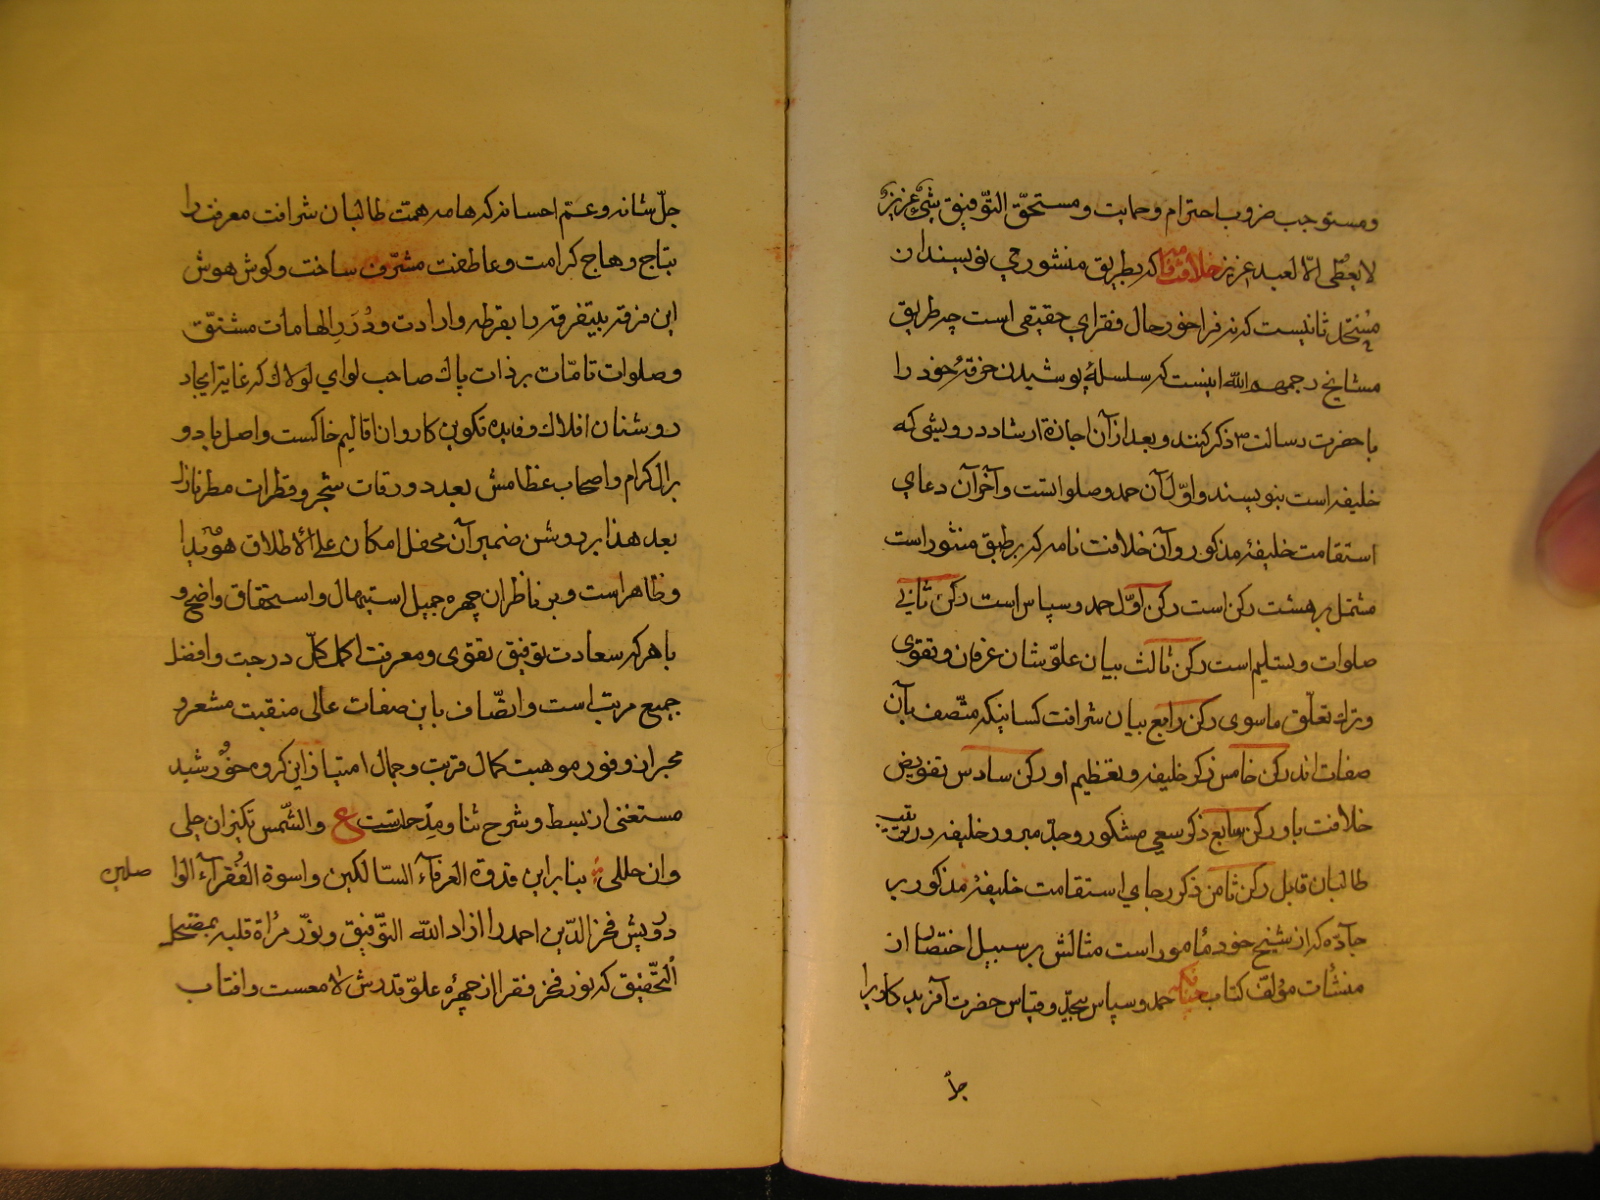 ومستوجب ضروب احترام وحمایت ومستحقّ التوّفیق شئ عزیز
لا یعطی الّا لعبد عزیز خلافتنامه که بطریق منشور می نویسند ان
ثانیست که نه فراخور حال فقرای حقیقی است چه طریق
مشایخ رحمهم الله اینست که سلسلهٔ پوشیدن خرقهٔ خود را
با حضرت رسالت م ذکر کنند و بعد از آن اجازة ارشاد درویشی که
خلیفه است بنویسند واوّل آن حمد وصلواتست وآخر آن دعای
استقامت خلیفهٔ مذکور وآن خلافت نامه که بر طبق منشور است
مشتمل بر هشت رکن است رکن اوّل حمد وسپاس است رکن ثانی
صلوات وتسلیم است رکن ثالث بیان علوّ شان عرفان وتقوی
وترک تعلّق ماسوی رکن رابع بیان شرافت کسانیکه متّصف بآن
صفات اند رکن خامس ذکر خلیفه وتعظیم او رکن سادس تفویض
خلافت باو رکن سابع ذکر سعی مشکور وجدّ مبرور خلیفه در تربیت
طالبان قابل رکن ثامن ذکر رجای استقامت خلیفهٔ مذکور بر
جادّه که از شیخ خود مأمور است مثالش بر سبیل اختصار از
منشأت مؤلّف کتاب چنانکه حمد وسپاس بیحدّ وقیاس حضرت آفریدکاریرا
جلّ
جلّ شانه وعمّ احسانه که هامه همت طالبان شرافت معرفت را
بتاج وهاج کرامت وعاطفت مشرّف ساخت وکوش هوش
این فرقه بیتفرقه را بقرطه وارادت ودُرَر الهامات مشنّف
وصلوات تامّات بر ذات پاک صاحب لوای لولاک که غایة ایجاد
روشنان افلاک وفایده تکوین کاروان اقالیم خاکست واصل باد و
بر آل کرام واصحاب عظامش بعدد ورقات شجر وقطرات مطر نازل
بعد هذا بر روشن ضمیر آن محفل امکان علی الاطلاق هویدا
وظاهر است وبر ناظران چهره جمیل استیهال واستحقاق واضح و
باهر که سعادت توفیق تقوی ومعرفت اکمل کلّ درجت وافضل
جمیع مرتبه است واتّصاف باین صفات عالی منقبت مشعر و
مخبر از وفور موهبت کمال قربت وجمال امتیاز این کروه خورشید
مستغنی از بسط وشرح ثنا ومدّحتست ع والشّمس تکبر ان حلی
وان حللی بنا بر این قدوة العرفآء السّالکین واسوة الفُقَرآء الوا
صلین
درویش فخر الدّین احمد را ازاد الله التوّفیق ونوّر مرأة قلبه بمصقل
التحّقیق که نور فخر فقرا از چهرهٔ علوّ قدرش لامعست وافتاب